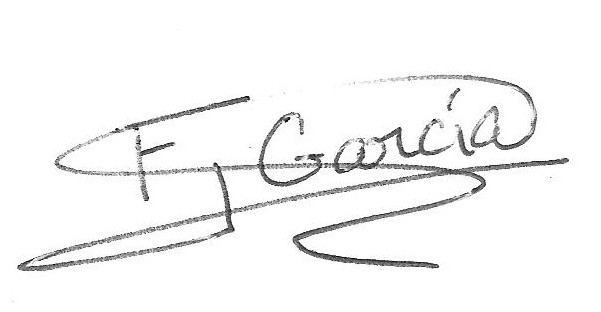 FJ García